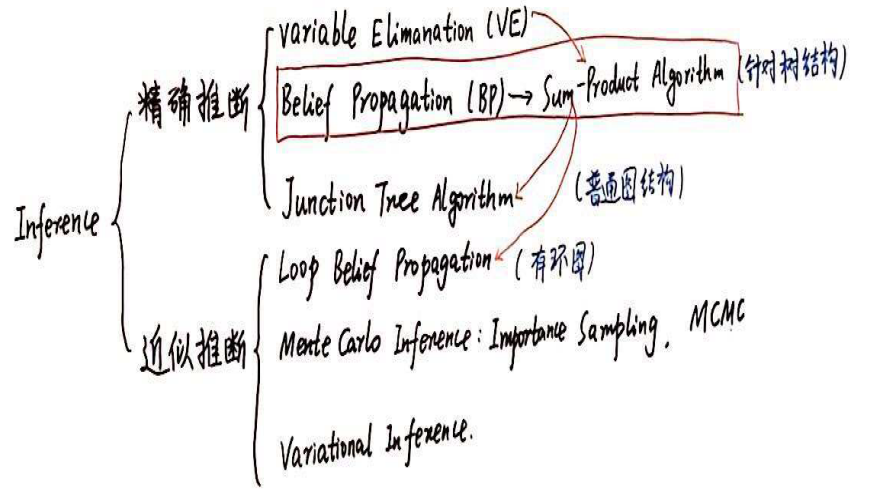 variable Elimanation (VE)
精确推断
Belief Propagation (BP) → Sum-Product Algorithm (针对树结构)
Junction Tree Algorithm (普通图结构)
Inference
Loop Belief Propagation (有环图)
近似推断
Mente Carlo Inference: Importance Sampling, MCMC
Variational Inference.